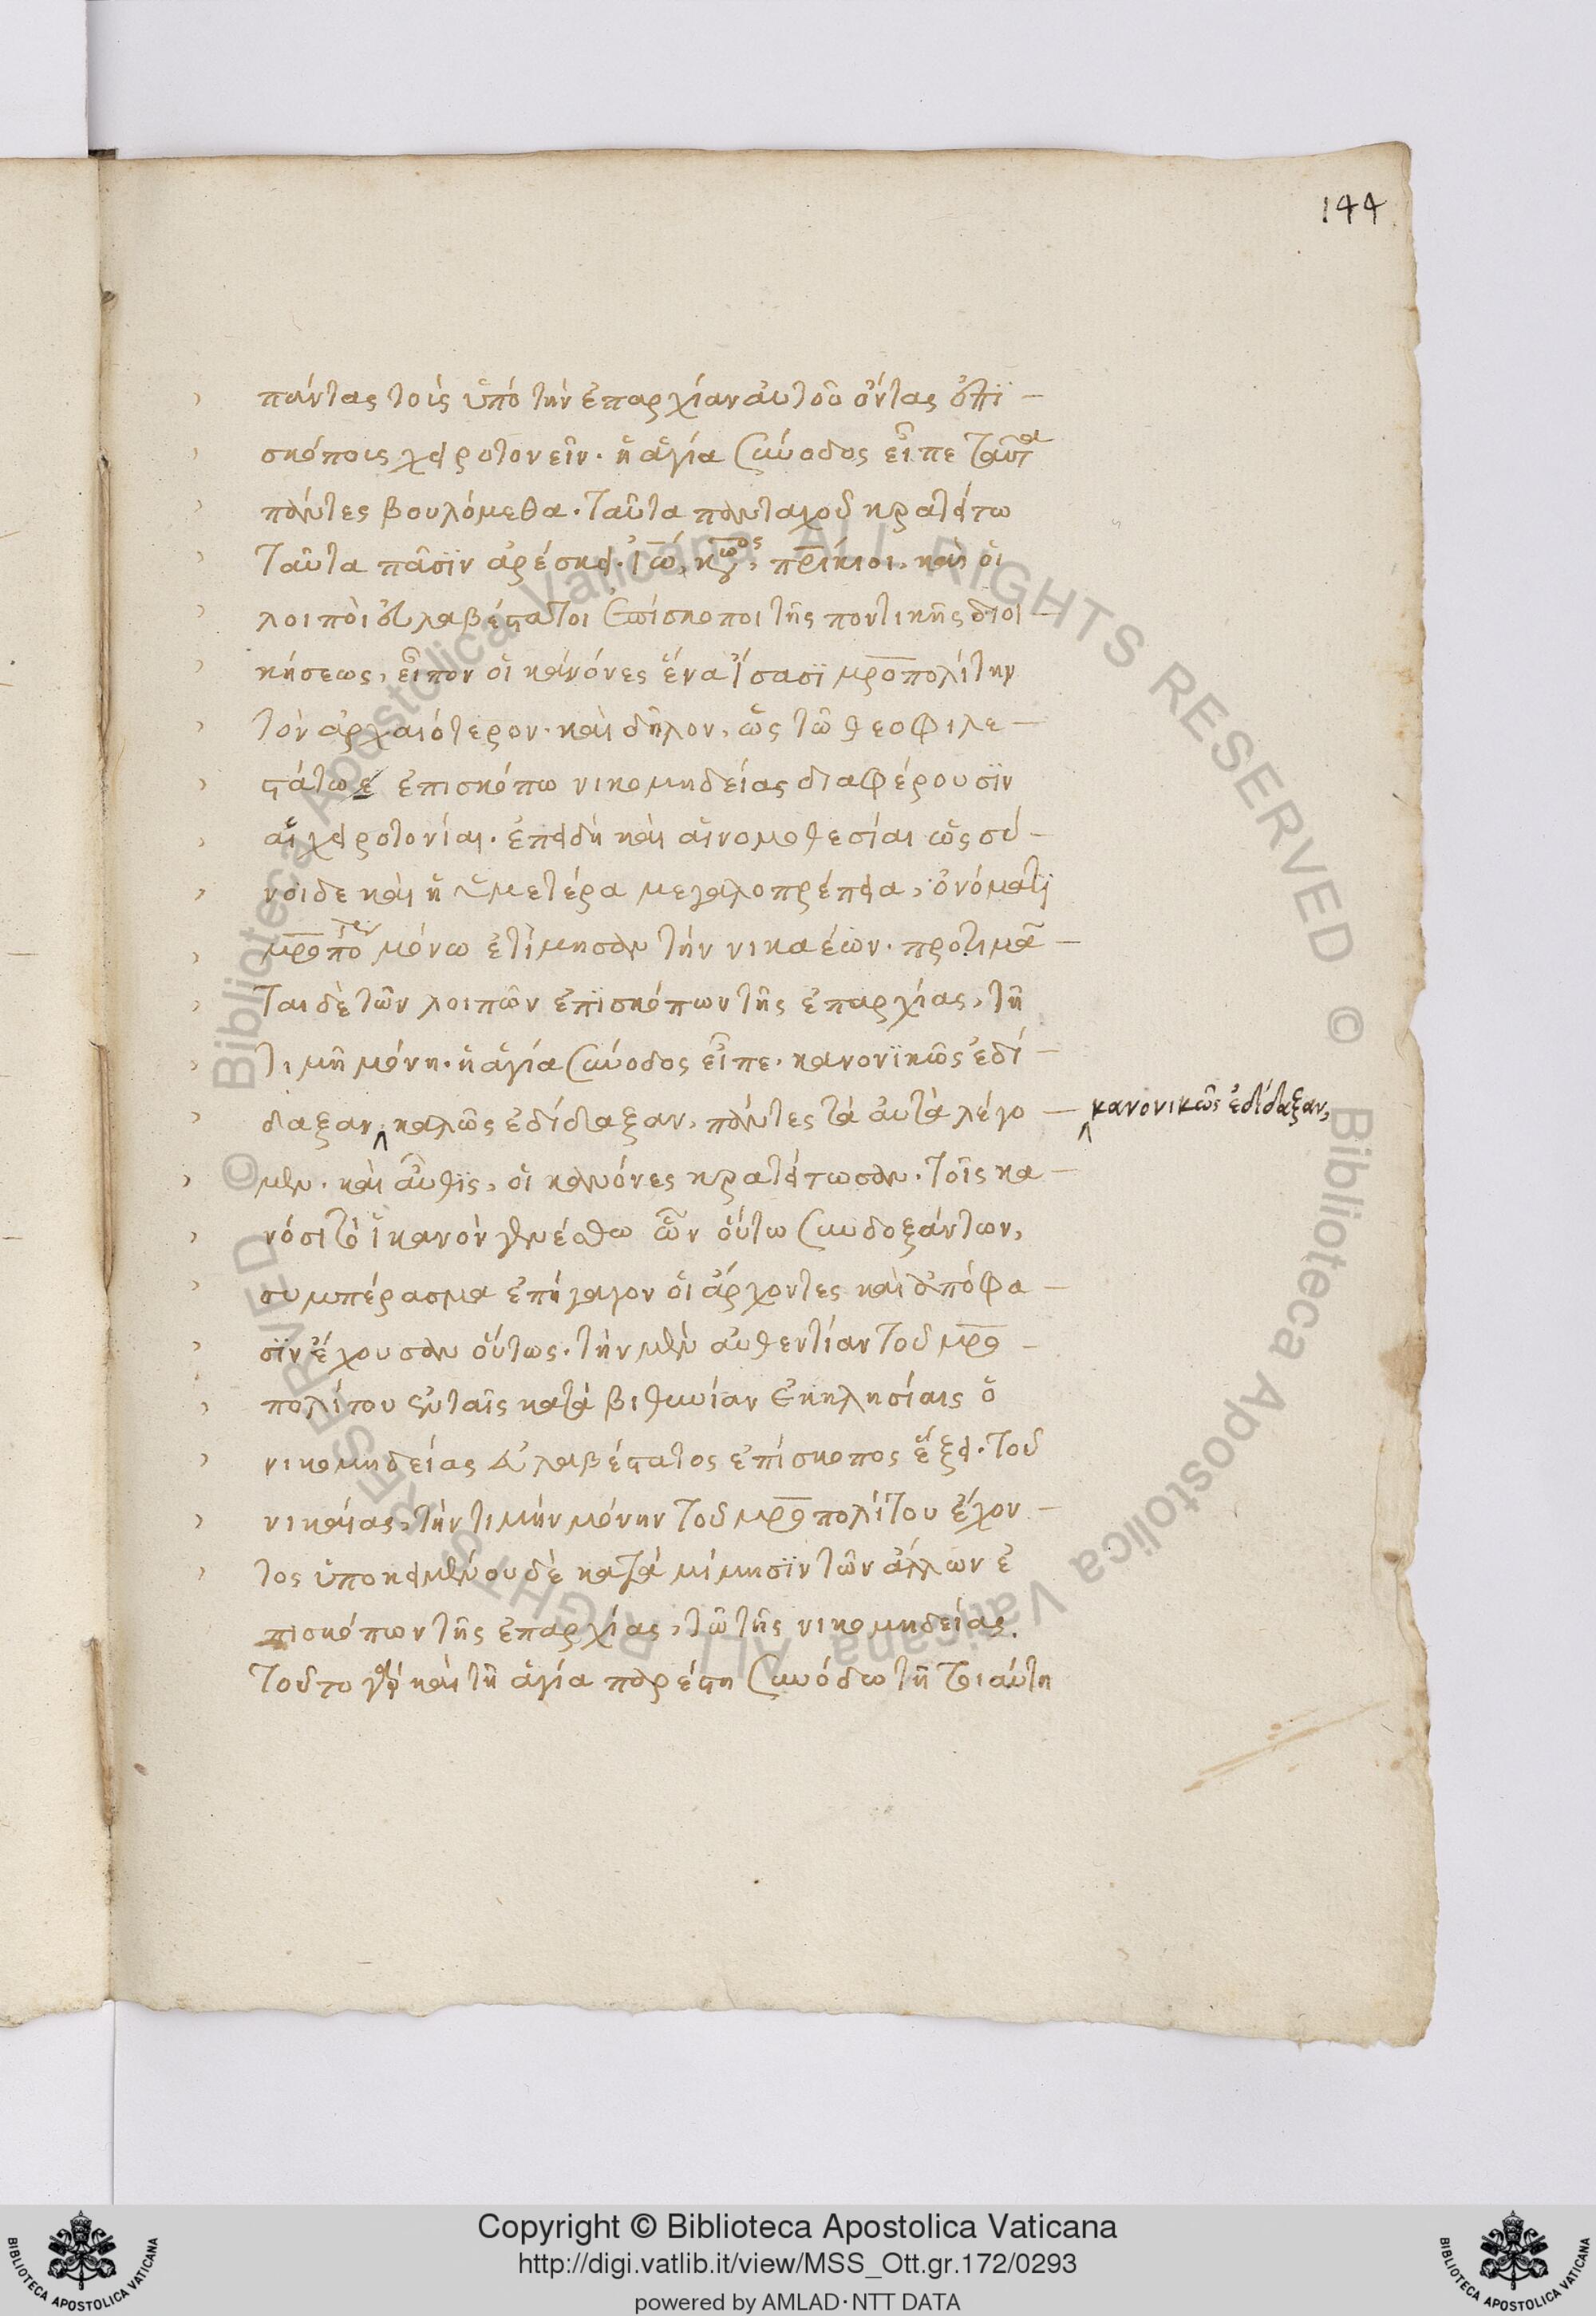 144
πάντας τοὺς ὑπὸ τὴν ἐπαρχίαν αὐτοῦ ὄντας ἐπι -
σκόπους χειροτονεῖν. ἡ ἁγία σύνοδος εἶπε ταῦτα
πάντες βουλόμεθα. ταῦτα πανταχοῦ κρατείτω
ταῦτα πᾶσϊν ἀρέσκει. ἰω, κων͞ος, πρίκιοι, καὶ οἱ
λοιποὶ εὐλαβέστατοι ἐπίσκοποι τῆς ποντικῆς διοι -
κήσεως, εἶπον οἱ κανόνες ἕνα ἴσασϊ μροπολίτην
τὸν ἀρχαιότερον. καὶ δῆλον, ὡς τῶ θεοφιλε -
στάτω ἐπισκόπω νικομηδείας διαφέρουσϊν
αἱ χειροτονίαι. ἐπειδὴ καὶ αἱ νομοθεσίαι ὡς σύ -
νοιδε καὶ ἡ ὑμετέρα μεγαλοπρέπεια, ὀνόματϊ
μροπο μόνω ἐτίμησαν τὴν νικαέων. προτιμᾶ -
ται δὲ τῶν λοιπῶν ἐπϊσκόπων τῆς ἐπαρχίας, τῆ
τιμῆ μόνη. ἡ ἁγία σύνοδος εἶπε. κανονϊκῶς ἐδί -
δαξαν, καλῶς ἐδίδαξαν, πάντες τὰ αὐτὰ λέγο -
κανονικῶς ἐδίδαξαν,
μεν. καὶ αὖθϊς, οἱ κανόνες κρατείτωσαν. τοῖς κα -
νόσι τὸ ἱκανὸν γενέσθω ὧν οὕτω συνδοξάντων,
συμπέρασμα ἐπήγαγον οἱ ἄρχοντες καὶ ἀπόφα -
σϊν ἔχουσαν οὕτως. τὴν μὲν αὐθεντίαν τοῦ μρο -
πολίτου ἐν ταῖς κατὰ βιθυνίαν ἐκκλησίαις ὁ
νικομηδείας εὐλαβέστατος ἐπίσκοπος ἕξει. τοῦ
νικαίας, τὴν τιμὴν μόνην τοῦ μροπολίτου ἔχον -
τος ὑποκειμένου δὲ κατὰ μίμησϊν τῶν ἄλλων ἐ
πισκόπων τῆς ἐπαρχίας, τῶ τῆς νικομηδείας.
τοῦτο γὰρ καὶ τῆ ἁγία παρέστη συνόδω τῆ τοιαύτη
Copyright © Biblioteca Apostolica Vaticana
http://digi.vatlib.it/view/MSS_Ott.gr.172/0293
powered by AMLAD·NTT DATA
BIBLIOTECA APOSTOLICA VATICANA
BIBLIOTECA APOSTOLICA VATICANA
© Biblioteca Apostolica Vaticana ALL RIGHTS RESERVED © Biblioteca Apostolica Vaticana ALL RIGHTS RESERVED